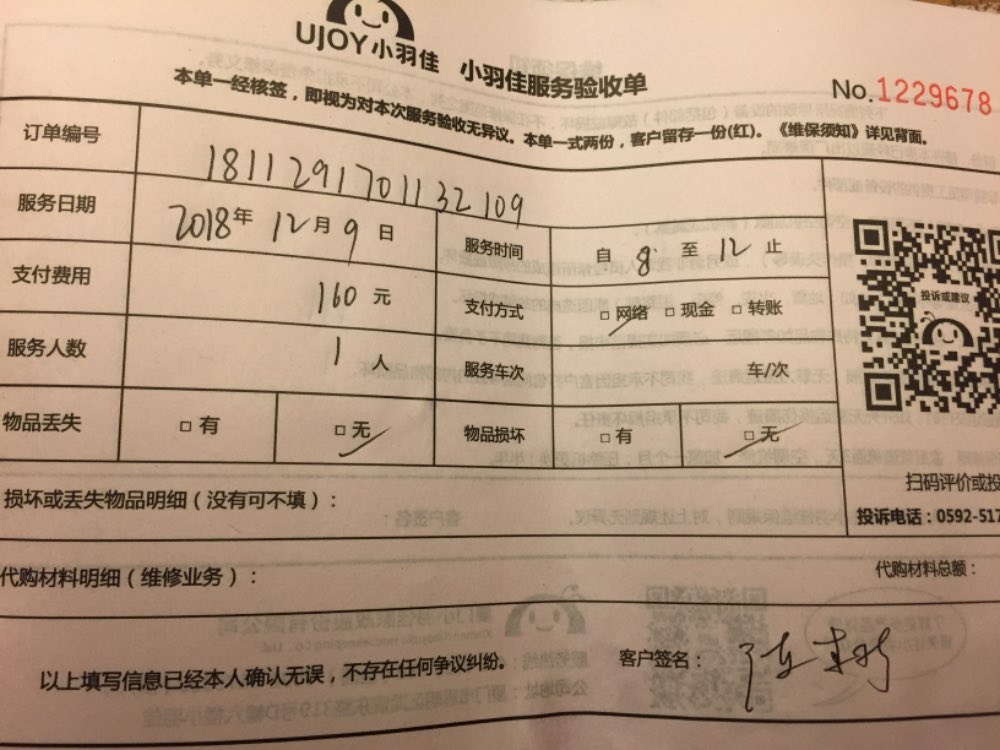 UJOY小羽佳 小羽佳服务验收单
No.1229678
本单一经核签，即视为对本次服务验收无异议。本单一式两份，客户留存一份(红)。《维保须知》详见背面。
订单编号 18112917011 32 109
服务日期 2018年 12月 9日 服务时间 自 8 至 12 止
支付费用 160 元 支付方式 □ 网络 □ 现金 □ 转账
服务人数 1 人 服务车次 车/次
物品丢失 □ 有 □ 无 物品损坏 □ 有 □ 无
投诉或建议
扫码评价或投
投诉电话：0592-517
损坏或丢失物品明细（没有可不填）：
代购材料明细（维修业务）：
代购材料总额：
以上填写信息已经本人确认无误，不存在任何争议纠纷。 客户签名：